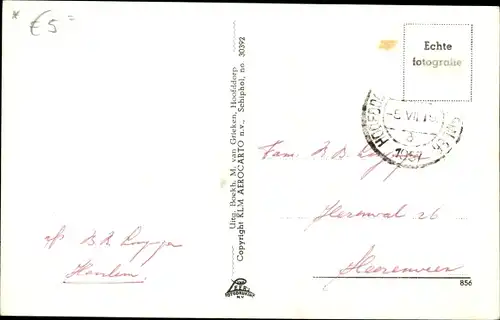 * € 5 =
Echte
fotografie
HOOFDDORP
-5.VII.19
8
1957
Uitg. Boekh. M. van Grieken, Hoofddorp
Copyright KLM AEROCARTO n.v., Schiphol, no. 30392
Fam. B.B.
Heerenwal 26
Heerenveen
afz B.B.
Haarlem.
856